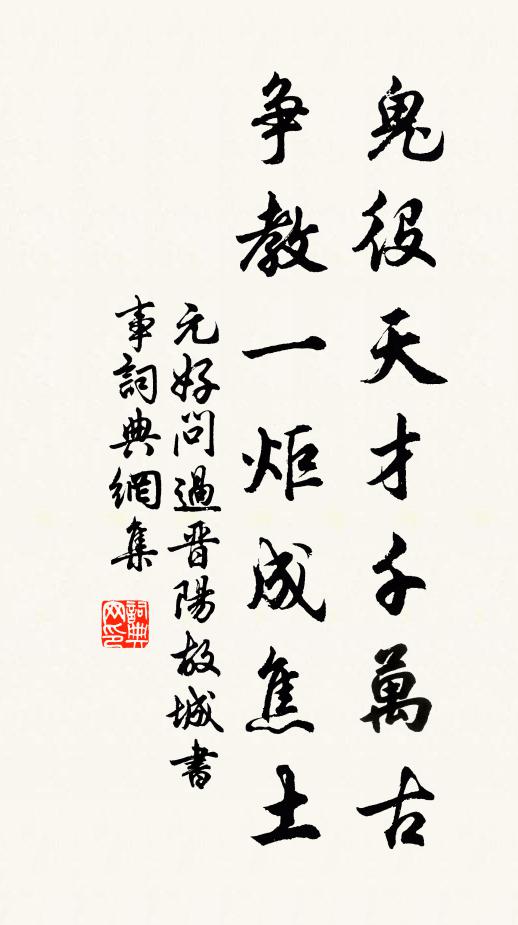 鬼役天才千萬古
争教一炬成焦土
元好問過晋陽故城書
事詞典網集
詞典网印